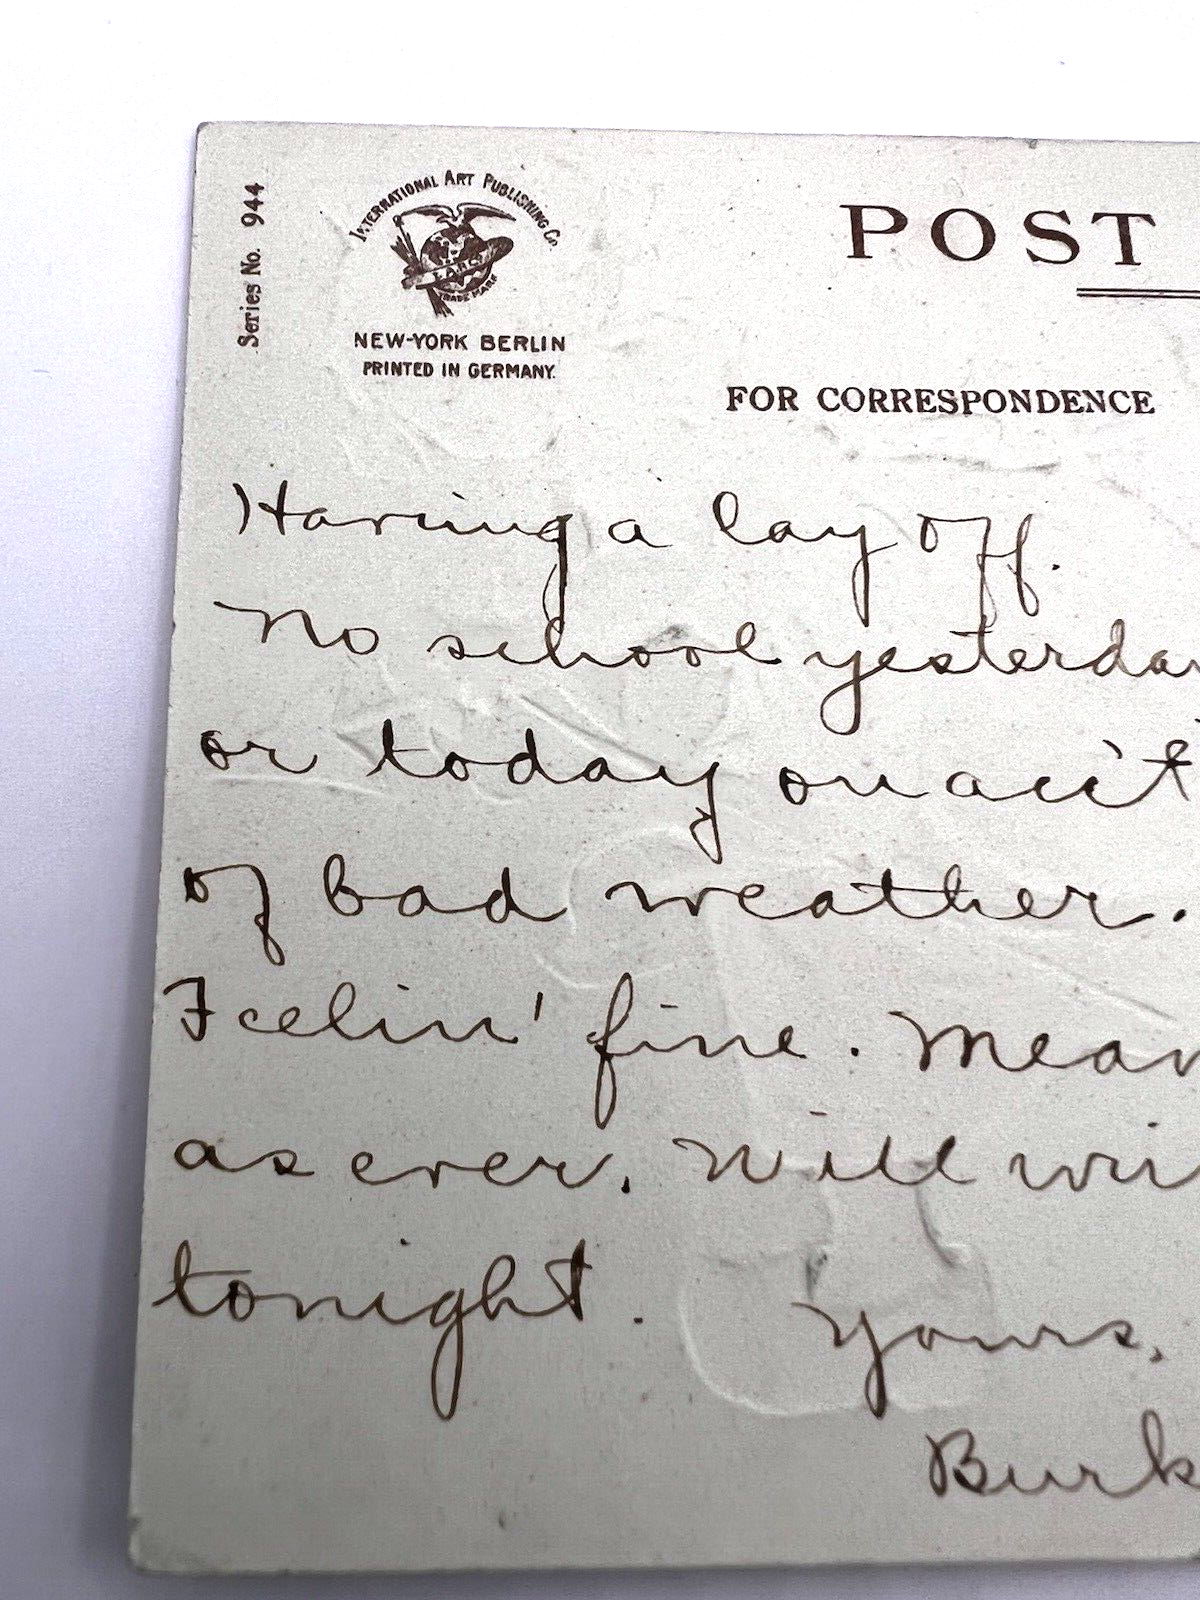 Series No. 944
INTERNATIONAL ART PUBLISHING Co.
I.A.P.Co.
TRADE MARK
NEW-YORK BERLIN
PRINTED IN GERMANY.
POST
FOR CORRESPONDENCE
Having a lay off.
No school yesterday
or today on acc't
of bad weather.
Feelin' fine. Mean
as ever. Will
tonight. Yours,
Burk